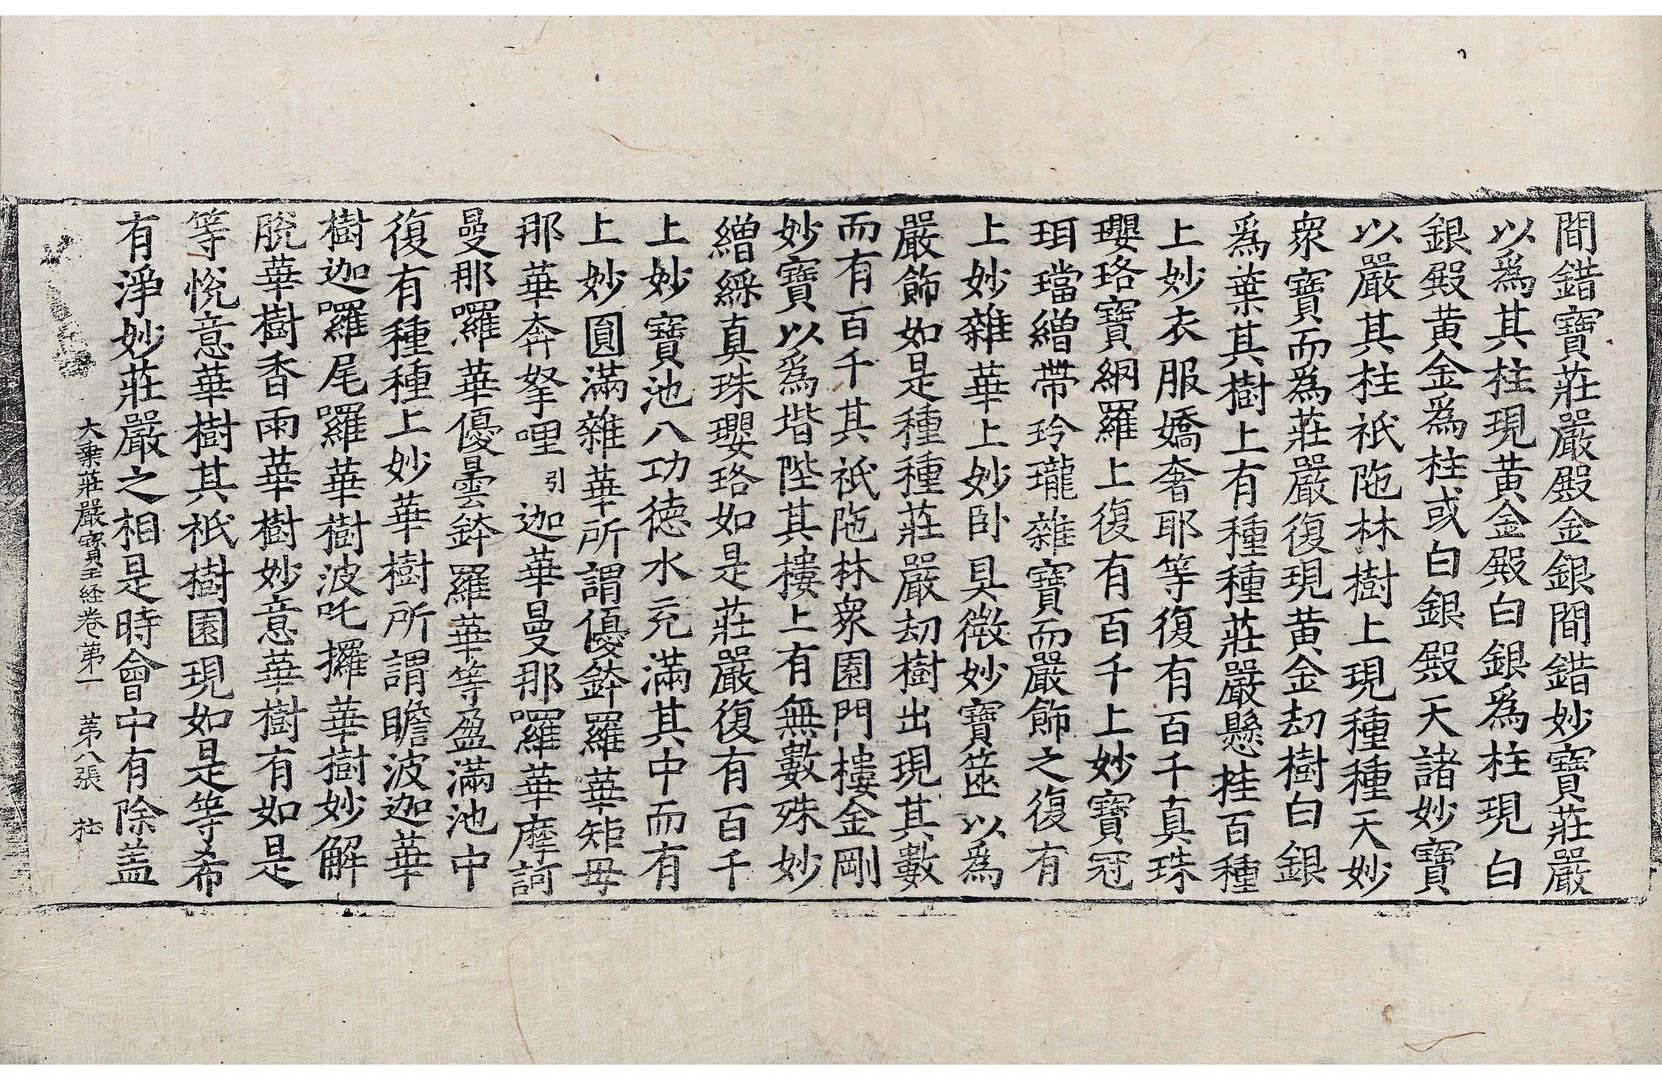 間錯寶莊嚴殿金銀間錯妙寶莊嚴
以爲其柱現黃金殿白銀爲柱現白
銀殿黃金爲柱或白銀殿天諸妙寶
以嚴其柱祇陁林樹上現種種天妙
衆寶而爲莊嚴復現黃金劫樹白銀
爲葉其樹上有種種莊嚴懸挂百種
上妙衣服嬌奢耶等復有百千真珠
瓔珞寶網羅上復有百千上妙寶冠
珥璫繒帶玲瓏雜寶而嚴飾之復有
上妙雜華上妙卧具微妙寶篋以爲
嚴飾如是種種莊嚴劫樹出現其數
而有百千其祇陁林衆園門樓金剛
妙寶以爲堦陛其樓上有無數殊妙
繒綵真珠瓔珞如是莊嚴復有百千
上妙寶池八功德水充滿其中而有
上妙圓滿雜華所謂優鉢羅華矩母
那華奔拏哩引迦華曼那囉華摩訶
曼那囉華優曇鉢羅華等盈滿池中
復有種種上妙華樹所謂瞻波迦華
樹迦囉尾囉華樹波吒攞華樹妙解
脫華樹香雨華樹妙意華樹有如是
等悅意華樹其祇樹園現如是等希
有淨妙莊嚴之相是時會中有除盖
大乘莊嚴寶王経卷第一 第八張 杜